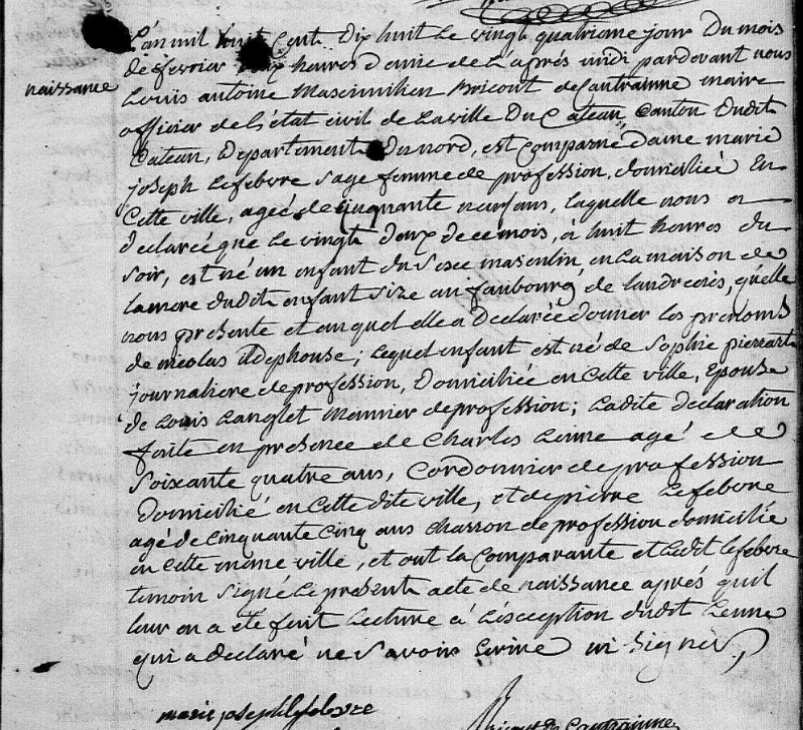 L'an mil huit Cent Dix huit Le vingt quatrieme jour Du mois
de fevrier deux heures demie de L'aprés midi pardevant nous
naissance
Louis antoine Maximilien Bricout de Cantrainne maire
officier de L'état civil de La ville Du Cateau, Canton Dudit
Cateau, Departement Du nord, est Comparue dame marie
joseph Lefebvre Sage femme de profession, domiciliée En
Cette ville, agée de Cinquante neuf ans, laquelle nous a
Declarée que Le vingt Deux de ce mois, à huit heures du
Soir, est né un enfant du Sexe masculin en La maison de
La mere dudit enfant Size au faubourg de landrecies, qu'elle
nous presente et auquel elle a Declarée donner Les prenoms
de nicolas ildephonse; Lequel enfant est né de Sophie pierrart
journaliere de profession, Domiciliée en Cette ville, Epouse
de Louis Langlet Meunier de profession; Ladite Declaration
faite en presence de Charles Lenne agé de
Soixante quatre ans, Cordonnier de profession
Domicilié en Cette dite ville, et de pierre Lefebvre
agé de Cinquante Cinq ans Charron de profession domicilié
en Cette meme ville, et ont la Comparante et Ledit Lefebvre
temoin Signé Le present acte de naissance aprés quil
leur en a été fait Lecture à L'exception dudit Lenne
qui a declaré ne Savoir Ecrire ni Signer,
marie joseph lefebvre
Bricout De Cantrainne